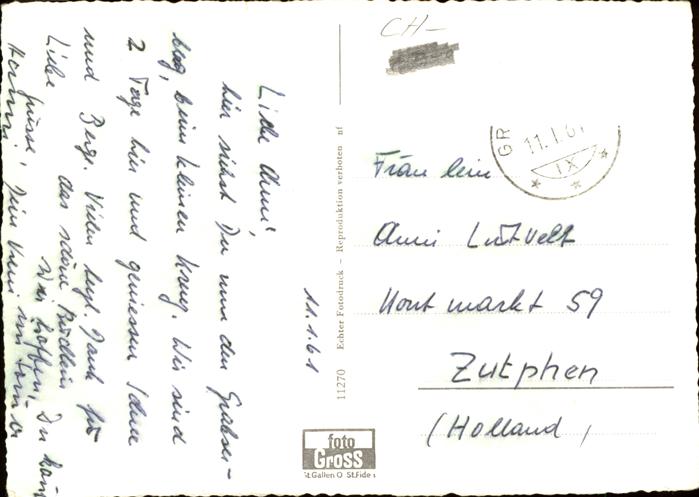 Liebe Anni,
hier siehst Du nun den Grabser-
berg, beim kleinen Krug. Wir sind
2 Tage hier und geniessen Schnee
und Berg. Vielen herzl. Dank für
das schöne Büchlein
Liebe Grüsse, Dein Vreni
11.1.61
11270 Echter Fotodruck – Reproduktion verboten nf
foto
Gross
St.Gallen O St.Fiden
CH–
GR
11.1.61
IX
Fräulein
Anni Lutvelt
Houtmarkt 59
Zutphen
(Holland)